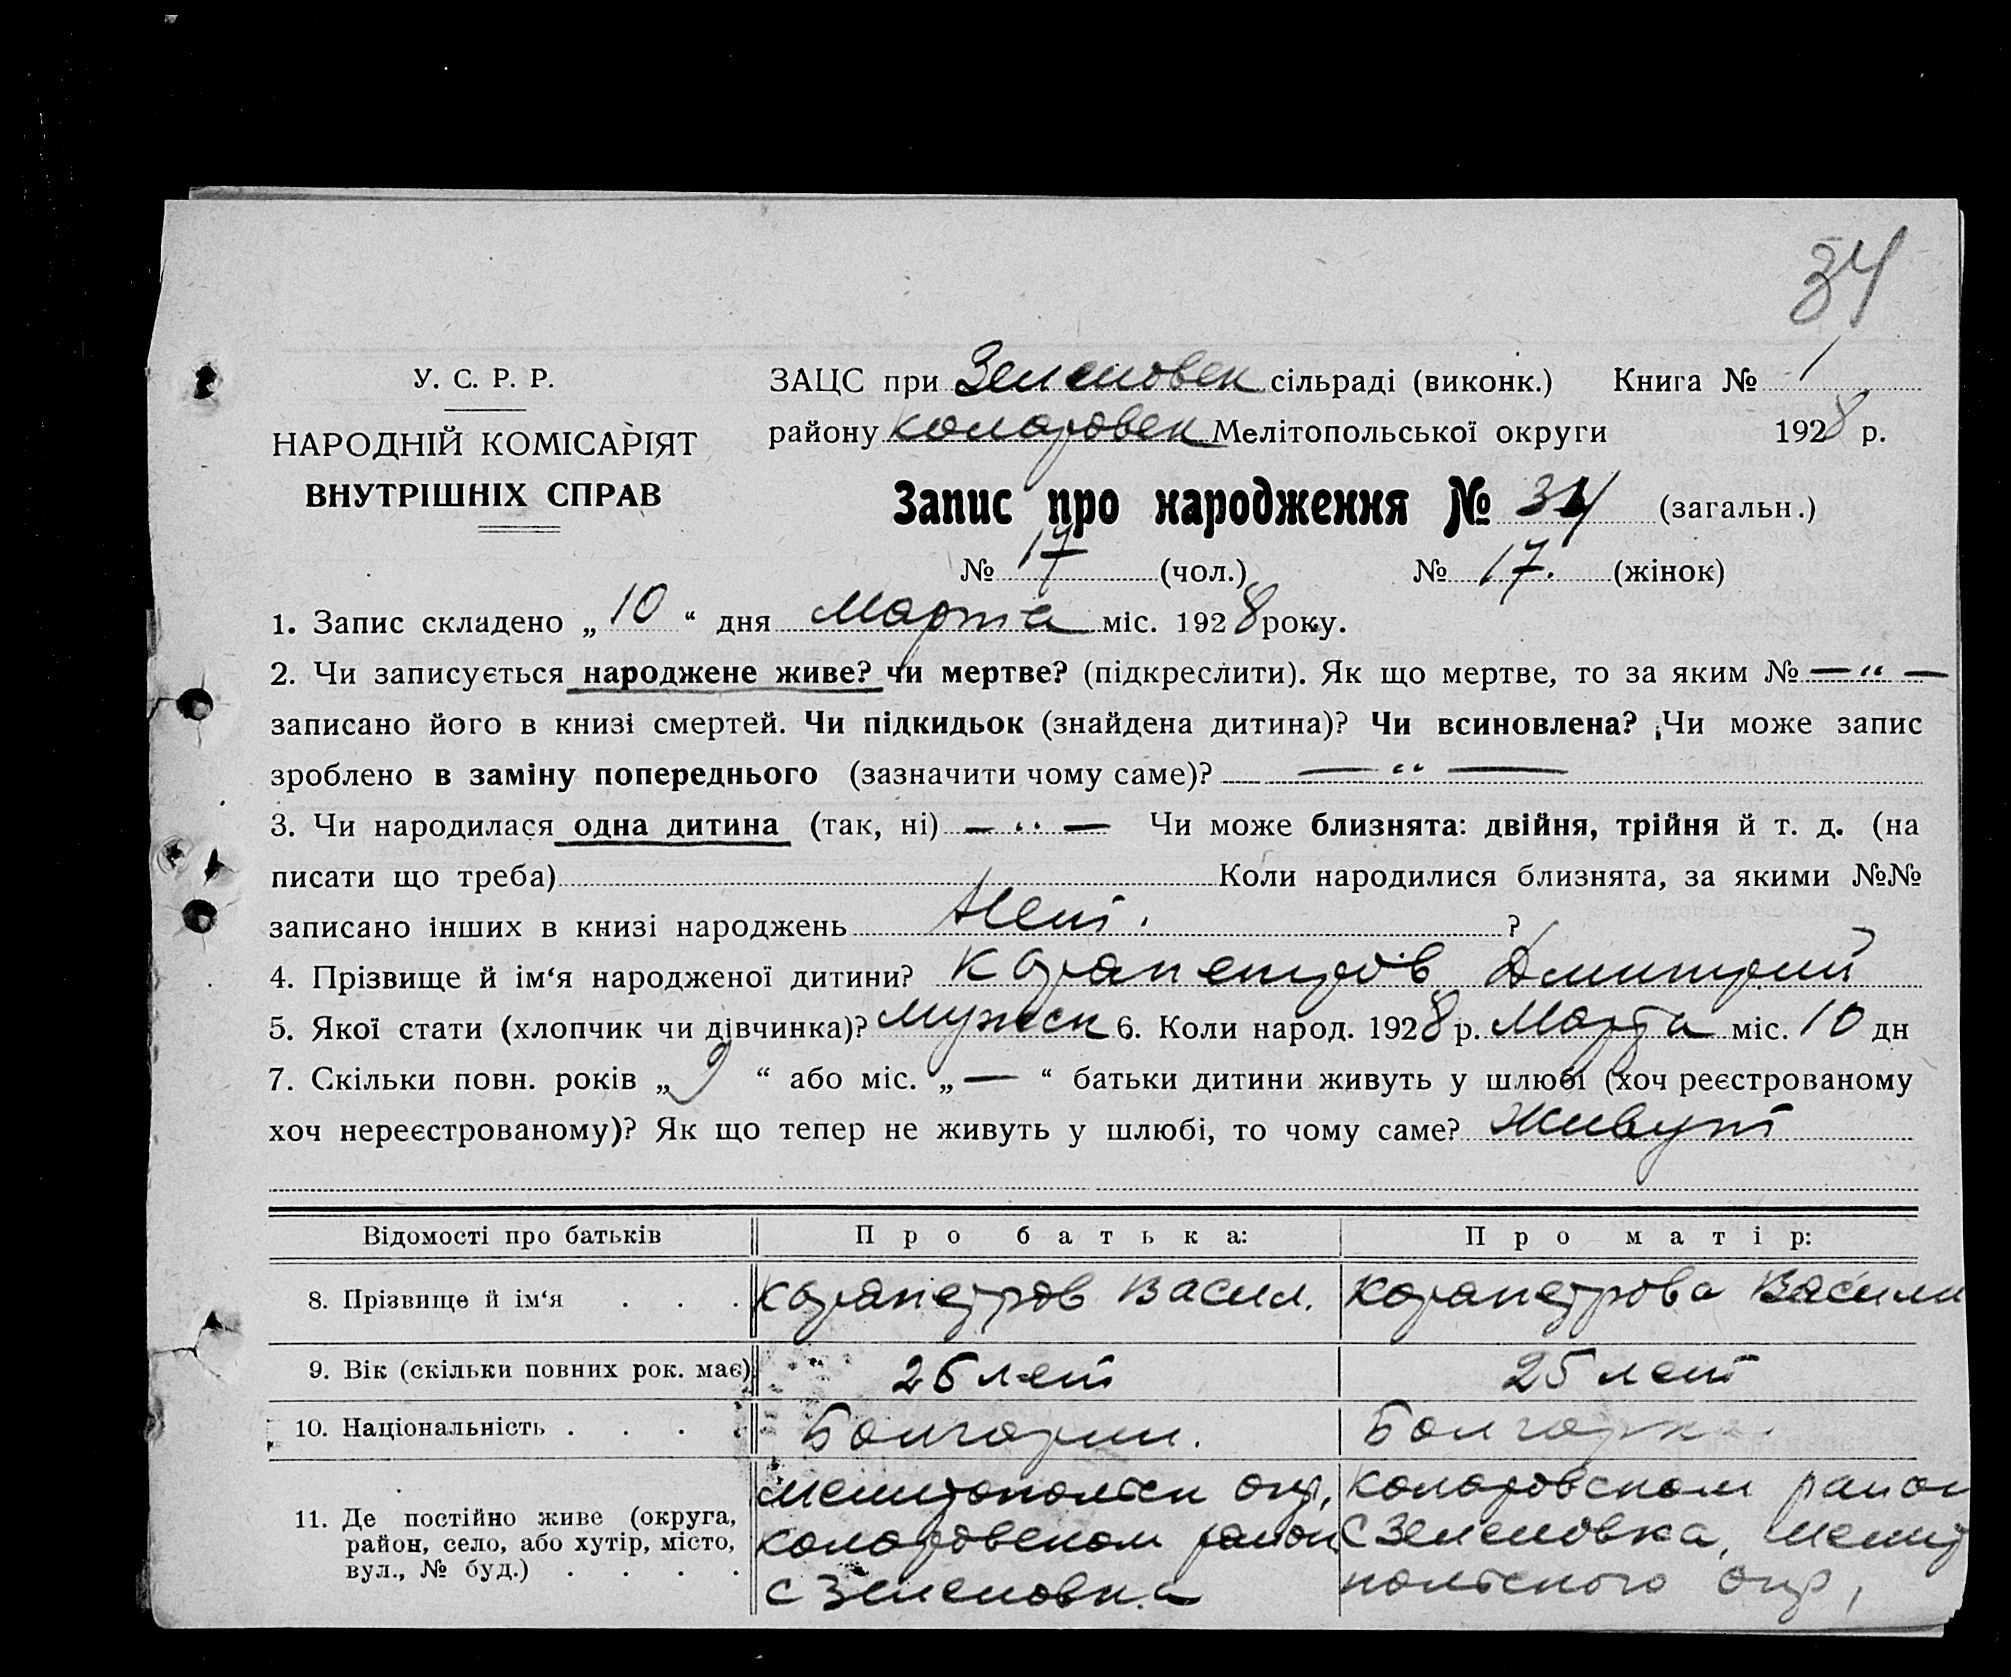 34
У. С. Р. Р.
НАРОДНІЙ КОМІСАРІЯТ
ВНУТРІШНІХ СПРАВ
ЗАЦС при Зеленовск сільраді (виконк.) Книга № 1
району Коларовск Мелітопольської округи 1928 р.
Запис про народження № 34 (загальн.)
№ 17 (чол.) № 17. (жінок)
1. Запис складено „ 10 “ дня Марта міс. 1928 року.
2. Чи записується народжене живе? чи мертве? (підкреслити). Як що мертве, то за яким № — „ —
записано його в книзі смертей. Чи підкидьок (знайдена дитина)? Чи всиновлена? Чи може запис
зроблено в заміну попереднього (зазначити чому саме)? — „ —
3. Чи народилася одна дитина (так, ні) — „ — Чи може близнята: двійня, трійня й т. д. (на
писати що треба) Коли народилися близнята, за якими №№
записано інших в книзі народжень Нет. ?
4. Прізвище й ім‘я народженої дитини? Карапетров Дмитрий
5. Якої стати (хлопчик чи дівчинка)? мужск 6. Коли народ. 1928 р. Марта міс. 10 дн
7. Скільки повн. років „ 9 “ або міс. „ — “ батьки дитини живуть у шлюбі (хоч реєстрованому
хоч нереєстрованому)? Як що тепер не живуть у шлюбі, то чому саме? Живут
Відомості про батьків Про батька: Про матір:
8. Прізвище й ім‘я . . . Карапетров Васил. Карапетрова Васили
9. Вік (скільки повних рок. має) 26 лет 25 лет
10. Національність . . . . Болгарин. Болгарка
11. Де постійно живе (округа,
район, село, або хутір, місто,
вул., № буд.) . . . .
Мелитопольск окр,
Коларовском район
с Зеленовка
Коларовском район
с Зеленовка, Мелит
польского окр,